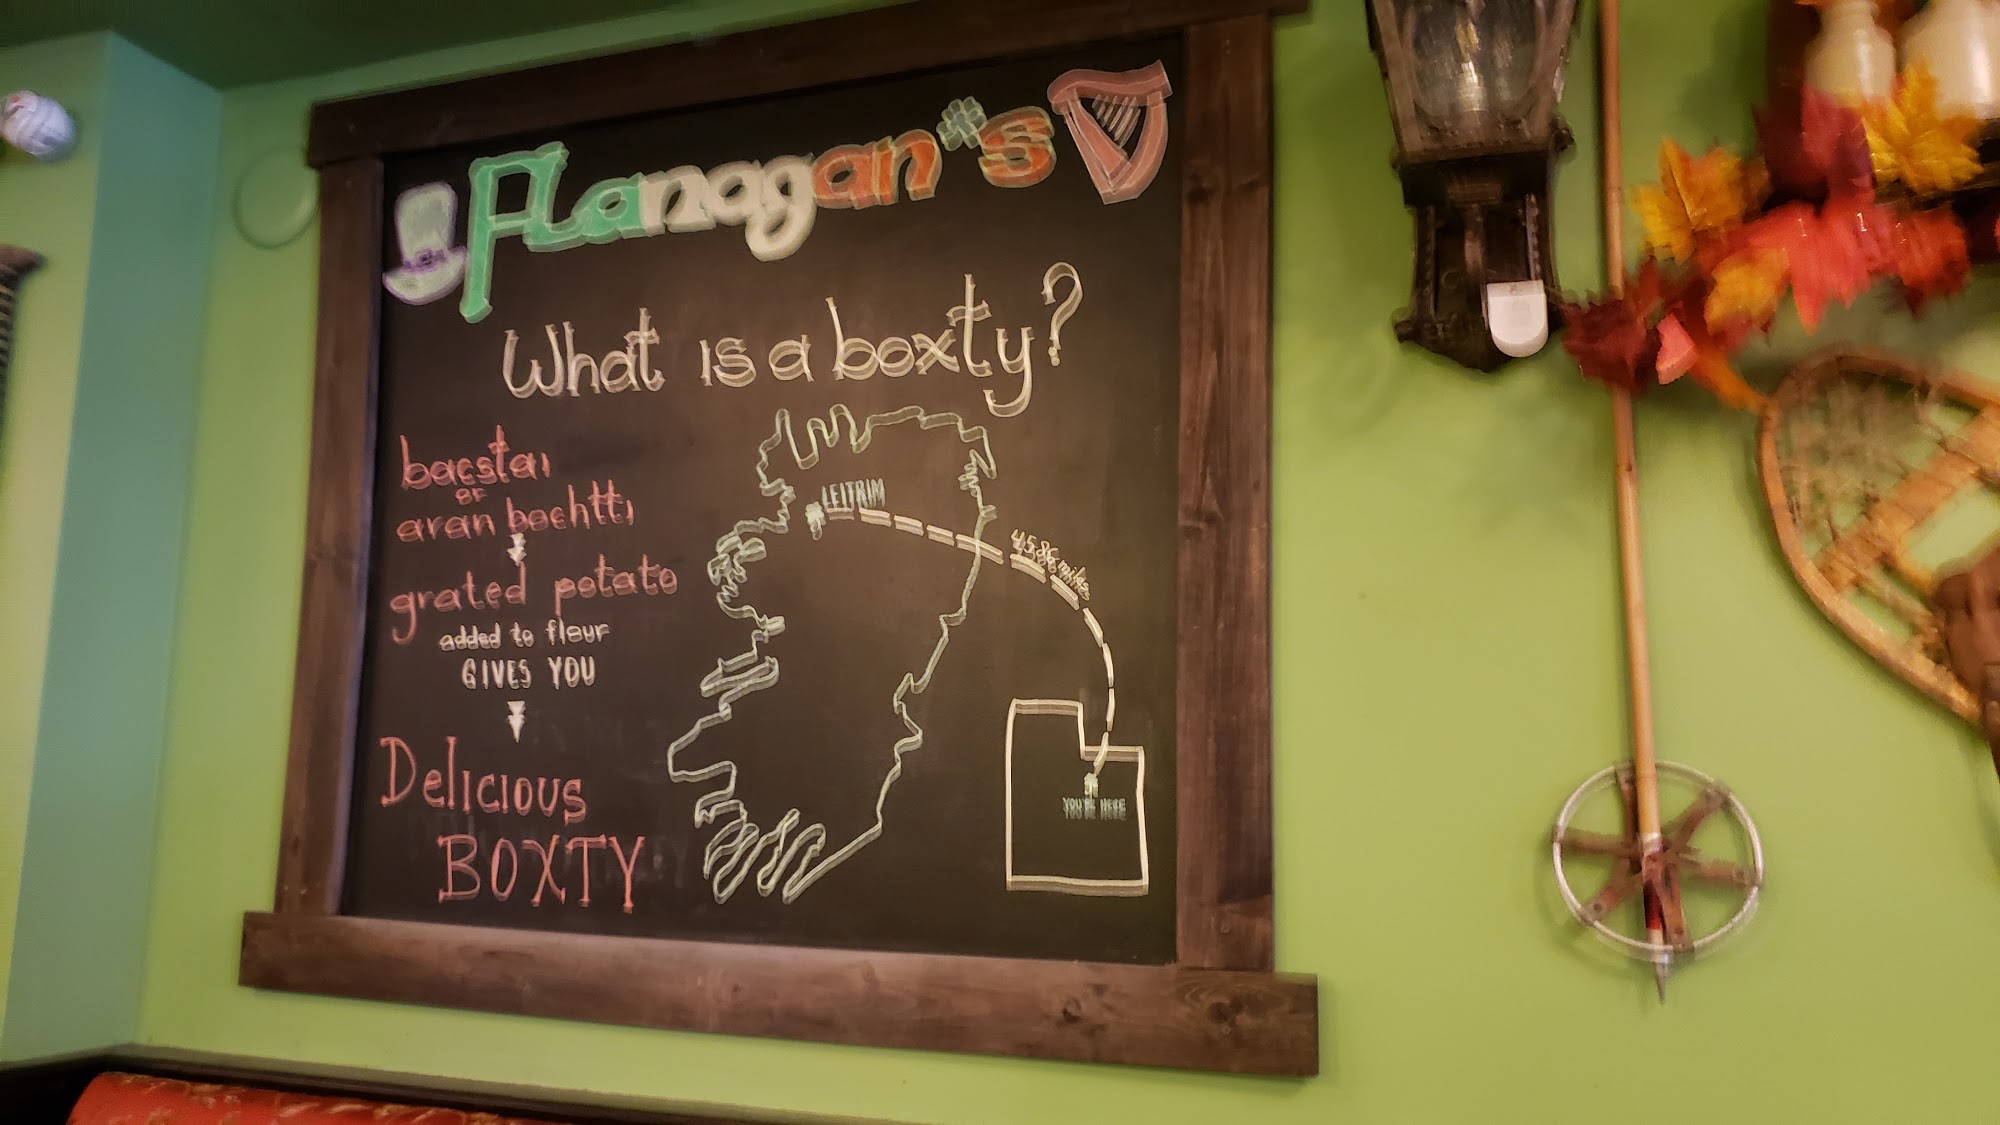 Flanagan's
What is a boxty?
bacstaı
or
aran bochttı
grated potato
added to flour
GIVES YOU
Delicious
BOXTY
LEITRIM
4586 miles
YOU'RE HERE